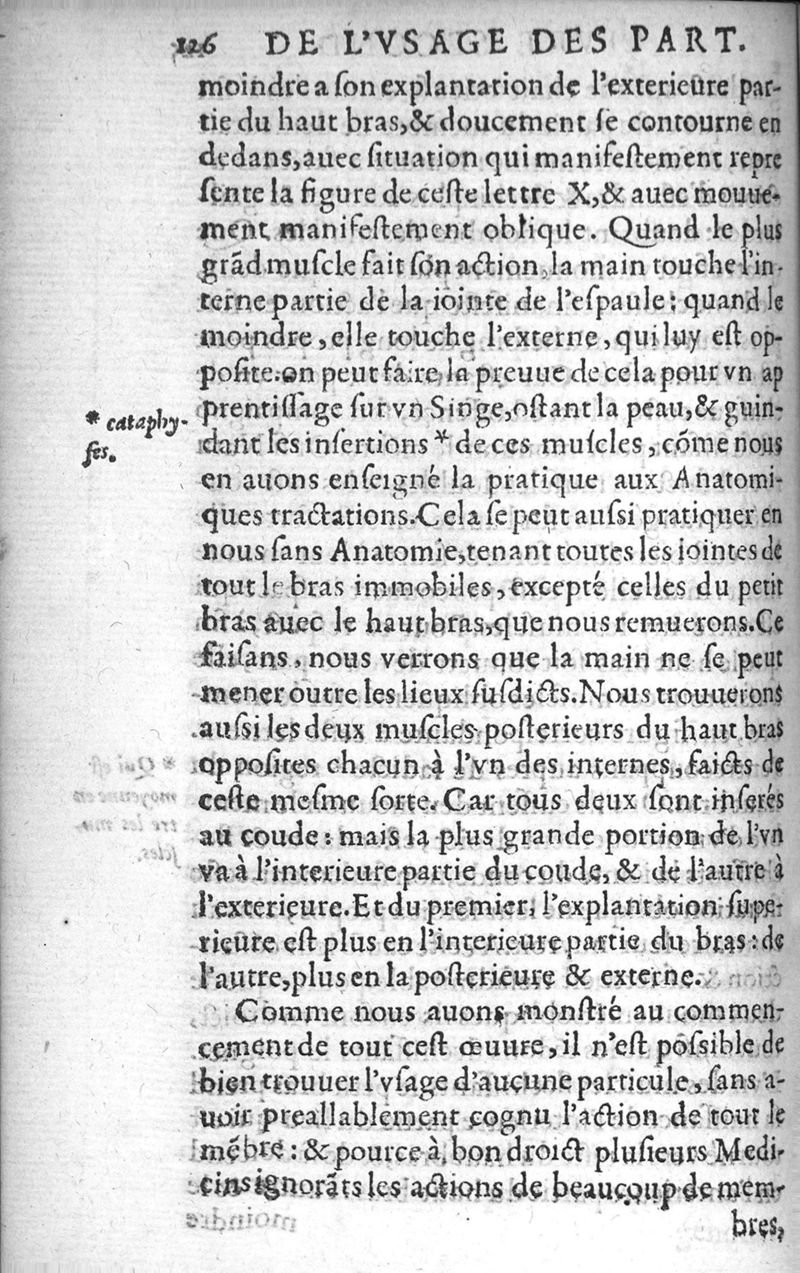 126 DE L'VSAGE DES PART.
moindre a ſon explantation de l'exterieure par-
tie du haut bras,& doucement ſe contourne en
dedans,auec ſituation qui manifeſtement repre
ſente la figure de ceſte lettre X,& auec mouue-
ment manifeſtement oblique. Quand le plus
grãd muſcle fait ſon action,la main touche l'in-
terne partie de la iointe de l'eſpaule: quand le
moindre, elle touche l'externe, qui luy eſt op-
poſite.on peut faire la preuue de cela pour vn ap
prentiſſage ſur vn Singe,oſtant la peau,& guin-
* cataphy-
ſes.
dant les inſertions * de ces muſcles, cõme nous
en auons enſeigné la pratique aux Anatomi-
ques tractations.Cela ſe peut auſsi pratiquer en
nous ſans Anatomie,tenant toutes les iointes de
tout le bras immobiles, excepté celles du petit
bras auec le haut bras,que nous remuerons.Ce
faiſans, nous verrons que la main ne ſe peut
mener outre les lieux ſuſdicts.Nous trouuerons
auſsi les deux muſcles poſterieurs du haut bras
oppoſites chacun à l'vn des internes, faicts de
ceſte meſme ſorte. Car tous deux ſont inſerés
au coude: mais la plus grande portion de l'vn
va à l'interieure partie du coude, & de l'autre à
l'exterieure. Et du premier, l'explantation ſupe-
rieure eſt plus en l'interieure partie du bras: de
l'autre,plus en la poſterieure & externe.
Comme nous auons monſtré au commen-
cement de tout ceſt œuure, il n'eſt poſsible de
bien trouuer l'vſage d'aucune particule, ſans a-
uoir preallablement cognu l'action de tout le
mẽbre: & pource à bon droict pluſieurs Medi-
cins ignorãts les actions de beaucoup de mem-
bres,